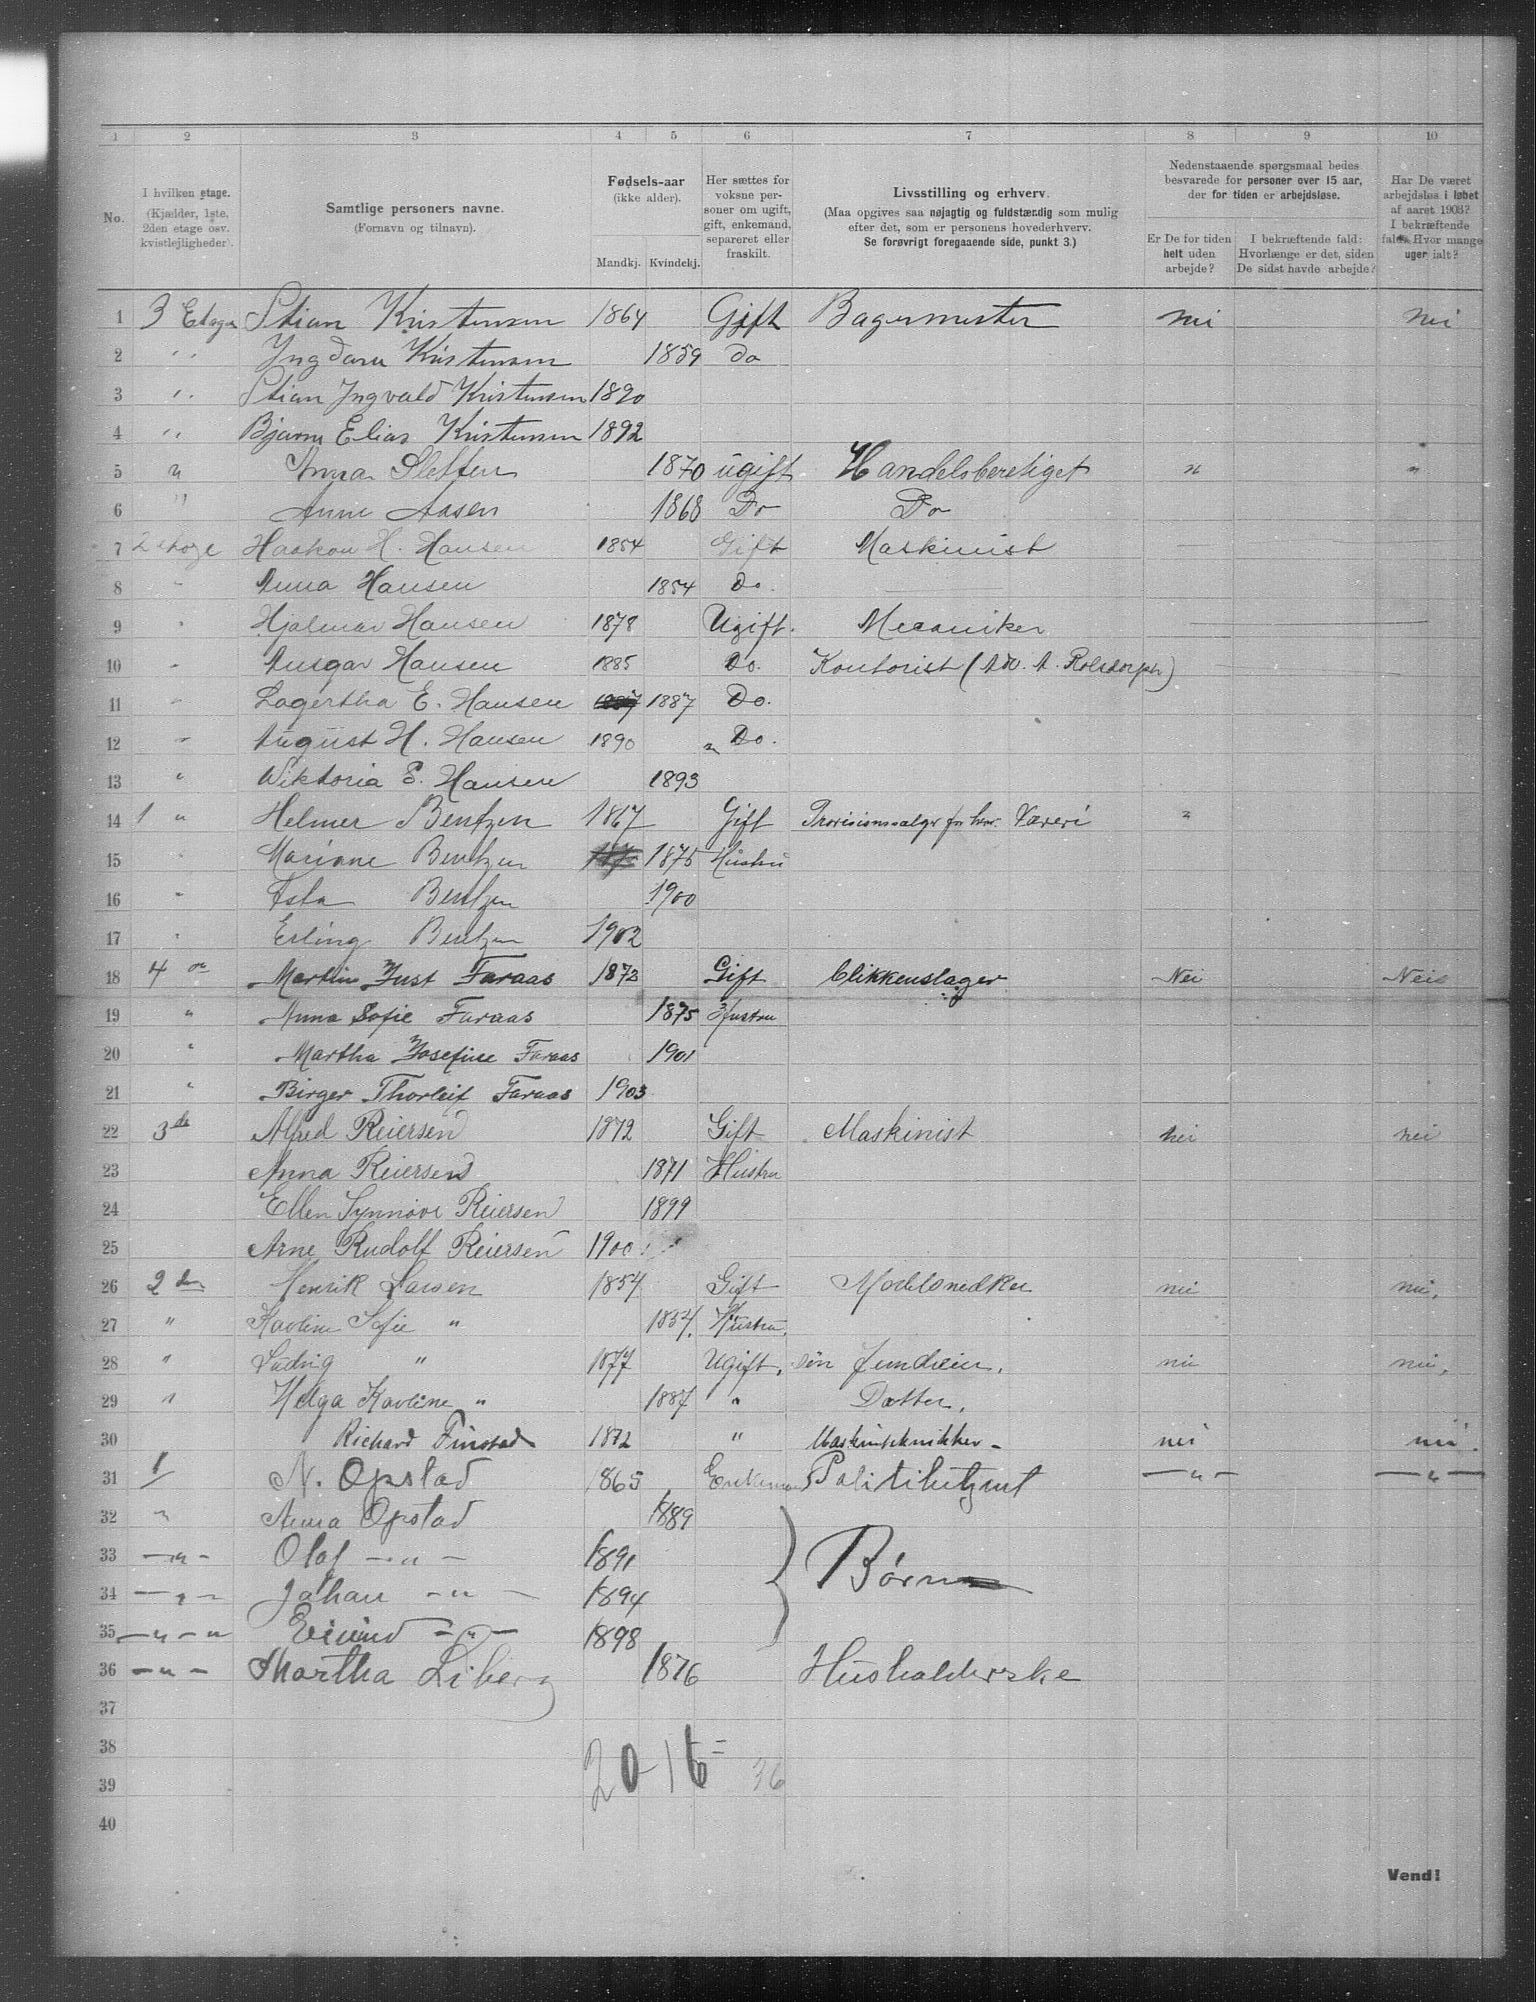 1 2 3 4 5 6 7 8 9 10
No.
I hvilken etage.
(Kjælder, 1ste,
2den etage osv.
kvistlejligheder).
Samtlige personers navne.
(Fornavn og tilnavn).
Fødsels-aar
(ikke alder).
Mandkj. Kvindekj.
Her sættes for
voksne per-
soner om ugift,
gift, enkemand,
separeret eller
fraskilt.
Livsstilling og erhverv.
(Maa opgives saa nøjagtig og fuldstændig som mulig
efter det, som er personens hovederhverv.
Se forøvrigt foregaaende side, punkt 3.)
Nedenstaaende spørgsmaal bedes
besvarede for personer over 15 aar,
der for tiden er arbejdsløse.
Er De for tiden
helt uden
arbejde?
I bekræftende fald:
Hvorlænge er det, siden
De sidst havde arbejde?
Har De været
arbejdsløs i løbet
af aaret 1903?
I bekræftende
fald: Hvor mange
uger ialt?
1 3 Etage Stian Kristensen 1864 Gift Bagermester nei nei
2 " Kristensen 1859 do
3 " Stian Ingvald Kristensen 1890
4 " Bjarne Elias Kristensen 1892
5 " Anna Sletten 1870 ugift Handelsberetiget " "
6 " Anne Aasen 1868 Do Do
7 2 etage Haakon H. Hansen 1854 Gift Maskinist
8 " Anna Hansen 1854 Do.
9 " Hjalmar Hansen 1878 Ugift. Mecaniker
10 " Ansgar Hansen 1885 Do. Kontorist (Adv. A. )
11 " Lagertha E. Hansen 1887 Do.
12 " August H. Hansen 1890 " Do.
13 " Wiktoria E. Hansen 1893
14 1 " Helmer Bentzen 1867 Gift Væveri "
15 " Mariane Bentzen 1875 Hustru
16 " Bentzen 1900
17 " Erling Bentzen 1902
18 4 Martin Just Faraas 1873 Gift Blikkenslager Nei Nei
19 " Anna Sofie Faraas 1875 Hustru
20 " Martha Josefine Faraas 1901
21 " Birger Thorleif Faraas 1903
22 3de Alfred Reiersen 1872 Gift Maskinist nei nei
23 Anna Reiersen 1871 Hustru
24 Ellen Synnøve Reiersen 1899
25 Arne Rudolf Reiersen 1900
26 2den Henrik Larsen 1854 Gift Modelsnedker nei nei.
27 " Karline Sofie " 1854. Hustru.
28 " Ludvig " 1877 Ugift. søn nei nei.
29 " Helga Karline " 1887 " Datter.
30 Richard Finstad 1872 " Maskintekniker - nei nei.
31 1 N. Opstad 1865 Enkeman Politibetjent — " — — " —
32 " Anna Opstad 1889
33 — " — Olaf — " — 1891
34 — " — Johan — " — 1894 } Børn
35 — " — " Eivind — " — 1898
36 — " — Martha Liberg 1876 Husholderske
37
38
39 20 - 16 = 36
40
Vend!